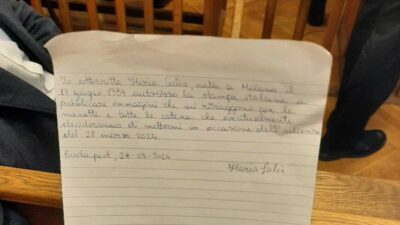 La sottoscritta Ilaria Salis, nata a Milano il
17 giugno 1984 autorizzo la stampa italiana a
pubblicare immagini che mi ritraggono con le
manette e tutte le catene che eventualmente
decideranno di mettermi in occasione dell'udienza
del 28 marzo 2024.
Budapest, 28-03-2024
Ilaria Salis